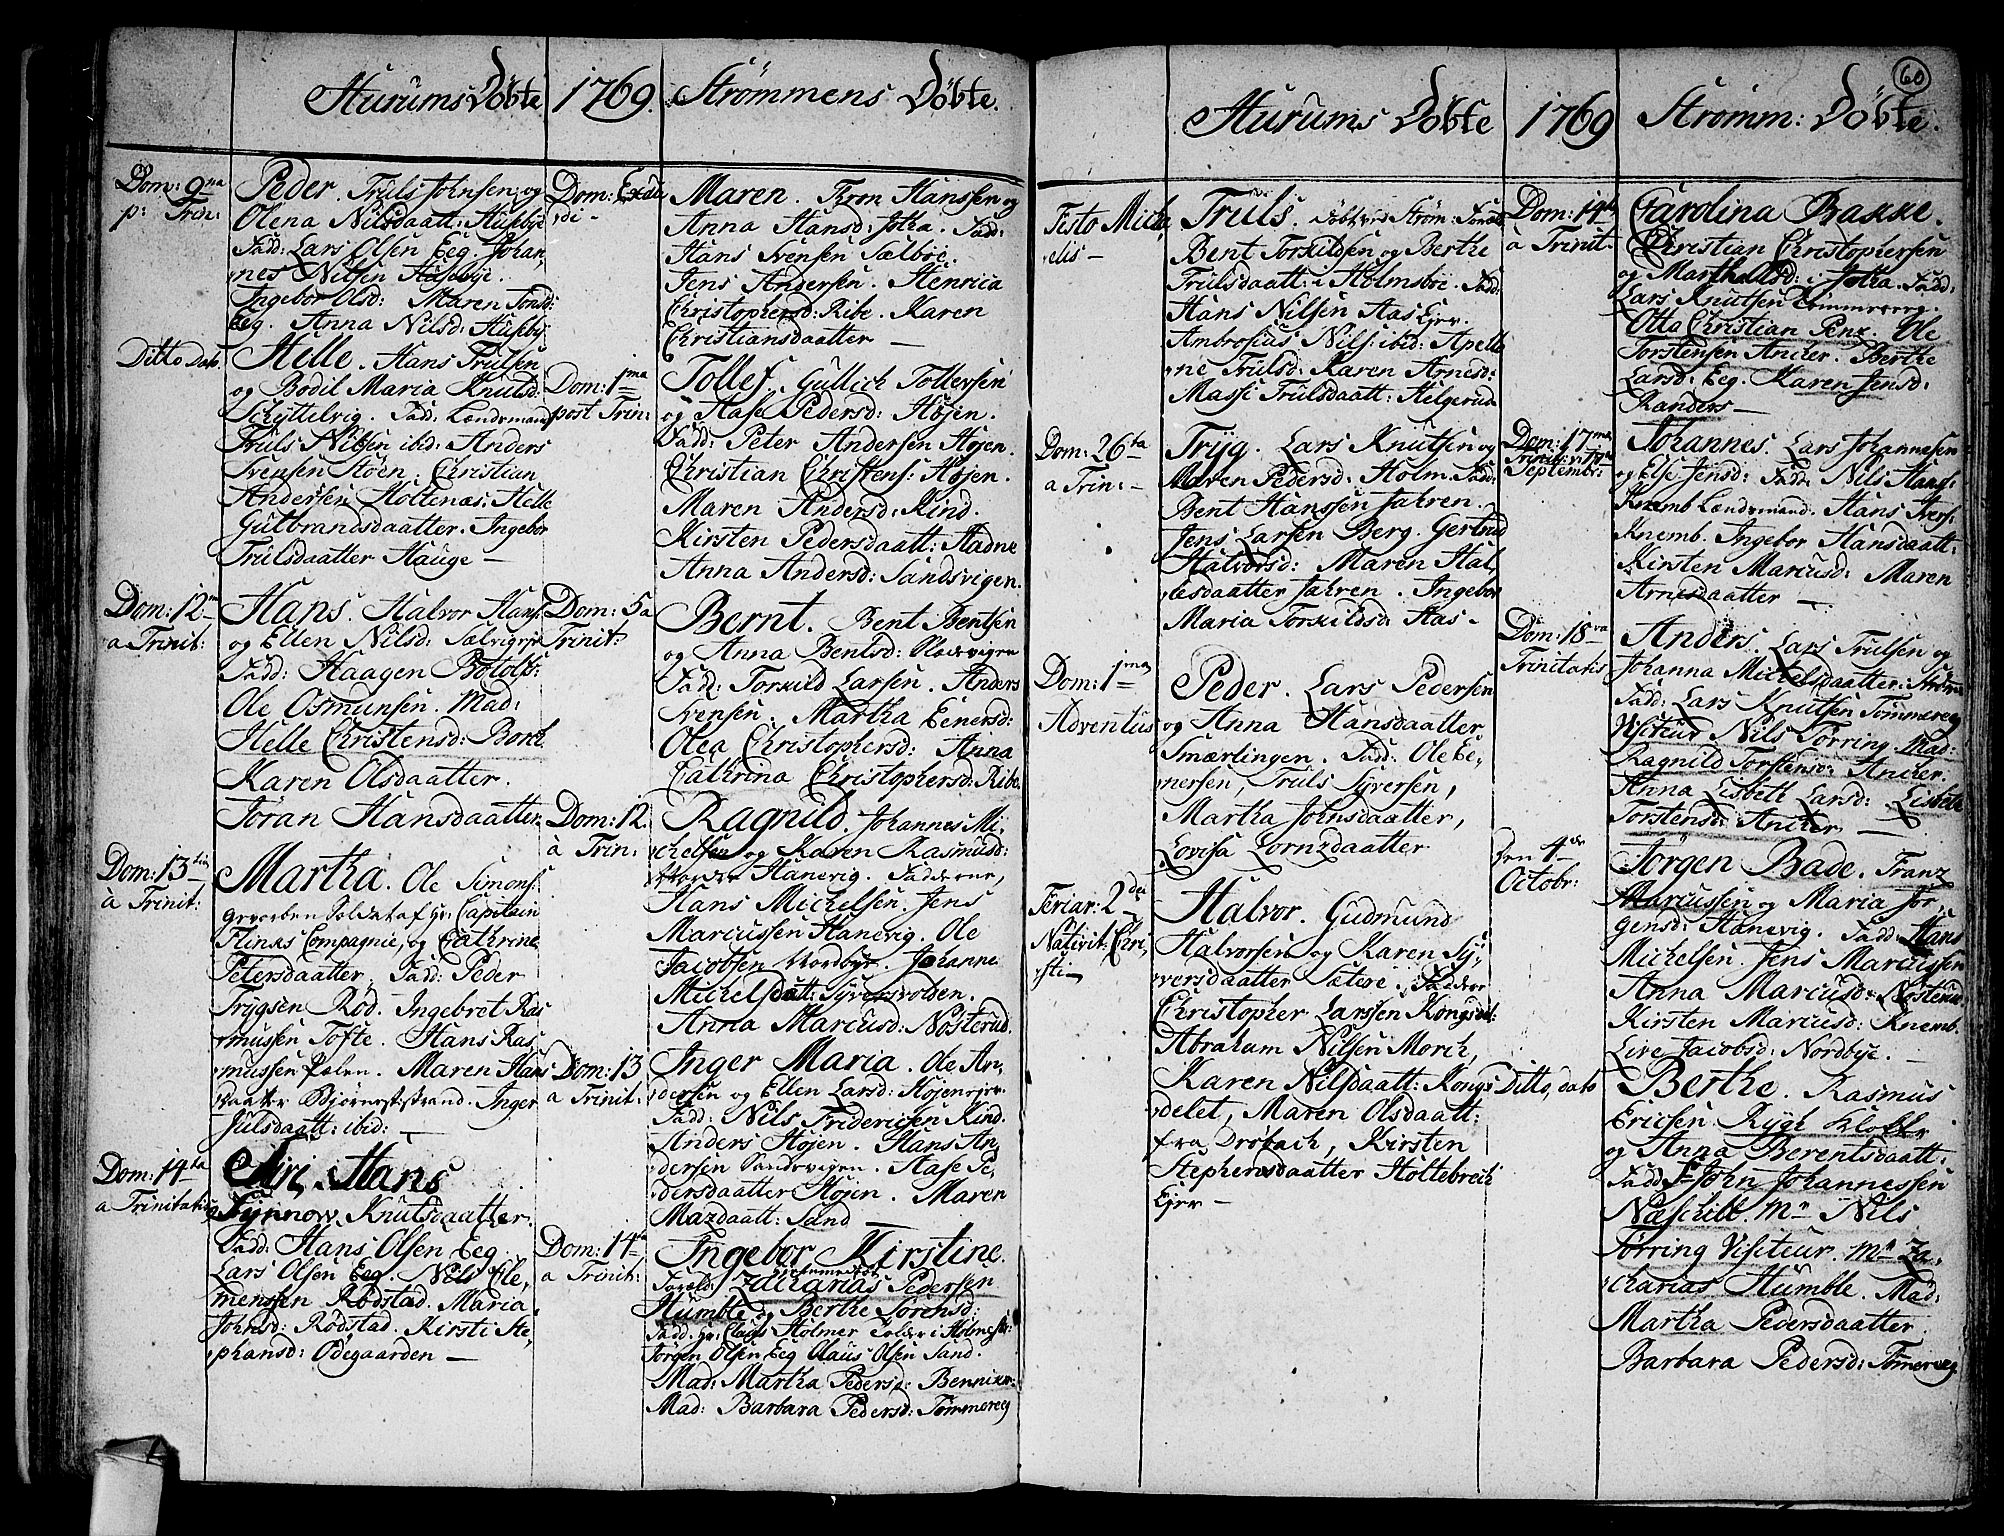 Hurums Döbte
1769.
Strömmens Döbte.
Dom: 9na
p: Trin:
Peder. Truls Johnsen og
Olena Nilsdaatt: Husebye
Fadd: Lars Olsen Eeg. Johan,
nes Nilsen Husebye.
Ingebor Olsd: Maren Tonsd:
Eeg. Anna Nilsd: Huseby
Ditto Dat.
Helle. Hans Trulsen
og Bodil Maria Knutsd.
Schyttelvig. Fadd: Lændsmand
Truls Nilsen ibid: Anders
Svensen Støen. Christian
Andersen Holtenæs. Helle
Gulbrandsdaatter. Ingebor
Trulsdaatter Hauge —
Dom: 12
a Trinit:
Hans. Halvor Hans:
og Ellen Nilsd: Sælvigeje
Fadd: Haagen Botolfs:
Ole Osmunsen. Mad:
Helle Christensd: Borch
Karen Olsdaatter.
Jöran Hansdaatter.
Dom: 13tia
à Trinit:
Martha. Ole Simons:
gevorben Soldat af Hr: Capitain
Flinks Compagnie, og Cathrine
Petersdaatter. Fadd: Peder
Trygsen Röd. Ingebret Ras
mussen Tofte. Hans Ras
mussen Pælen. Maren Hans
daatter Björnestrand. Inger
Julsdaatt: ibid: —
Dom: 14ta
a Trinitatis
Siri. Hans
Synnow Knutsdaatter.
Fadd: Hans Olsen Eeg.
Lars Olsen Eeg. Nils Cle,
mensen Rödstad. Maria
Johnsd: Rödstad. Kirsti Ste,
phansd: Ödegaarden —
Dom: Exau
di —
Maren. Tron Hanssen og
Anna Hansd: Jotka. Fadd:
Hans Svensen Sælböe.
Jens Andersen. Henrica
Christophersd: Ribe. Karen
Christiansdaatter —
Dom: 1ma
post Trin:
Tollef. Gullich Tollevsen
og Aase Pedersd: Höjen.
Fadd: Peter Andersen Höjen.
Christian Christens: Höjen.
Maren Andersd: Kind.
Kirsten Pedersdaatt: Stadne
Anna Andersd: Sandsvigen.
Dom: 5a
Trinit:
Bernt. Bent Bentsen
og Anna Bentsd:
Fadd: Torkild Larsen. Anders
Svensen. Martha Eenersd:
Olea Christophersd: Anna
Cathrina Christophersd: Ribe.
Dom: 12.
à Trin:
Ragnild. Johannes Mi,
chelsen og Karen Rasmusd:
Hanevig. Fadderne,
Hans Michelsen. Jens
Marcussen Hanevig. Ole
Jacobsen Nordbye. Johanne
Michelsdatt: Syversvolden.
Anna Marcusd: Nösterud.
Dom: 13
a Trinit:
Inger Maria. Ole An,
dersen og Ellen Larsd: Höjenejer.
Fadd: Nils Fridericsen Kind.
Anders Höjen. Hans An,
dersen Sandsvigen. Aase Pe,
dersdaatter Höjen. Maren
Mazdaatt: Sand —
Dom: 14ta
a Trinit:
Ingebor Kirstine.
Zacharias Pedersen
Humble og Berthe Sörensd:
Fadd: Hr: Claus Holmer Tolder i
Jörgen Olsen Eeg Claus Olsen Sand.
Mad: Martha Pedersd:
Mad: Barbara Pedersd: Tömmereeg
60
Hurums Döbte
1769
Strömm: Döbte.
Festo Micha,
elis —
Truls. Döbt ved Ström:
Bent Torkildsen og Berthe
Trulsdaatt: i Holmsboe. Fadd:
Hans Nilsen Aas Ejer.
Ambrosius Nils: ibid: Apello
ne Trulsd: Karen Arnesd:
Massi Trulsdaatt: Helgerud
Dom: 26ta
a Trin: —
Tryg. Lars Knutsen og
Maren Pedersd: Holm. Fadd:
Bent Hanssen Jahren.
Jens Larsen Berg. Gertrud
Halvorsd: Maren Hal,
desdaatter Jahren. Ingebor
Maria Torkildsd: Aas —
Dom: 1ma
Adventus
Peder. Lars Pedersen
og Anna Hansdaatter
Smærlingen. Fadd: Ole Ee,
nersen, Truls Syversen,
Martha Johnsdaatter,
Lovisa Lornzdaatter
Feriar: 2da
Nativit: Chri,
sti —
Halvor. Gudmund
Halvorsen og Karen Sy,
versdaatter Sætere. Fadder
Christopher Larssen Kongsdel:
Abraham Nilsen Morch,
Karen Nilsdaatt: Kongs
delet, Maren Olsdaatt:
fra Dröbach, Kirsten
Stephensdaatter Holtebrech
Ejer —
Dom: 14ta
à Trinit:
Carolina Bakke.
Christian Christophersen
og Martha Olsd: i Jotka. Fadd:
Lars Knutsen Tömmereeg.
Otto Christian Penz. Ole
Torstensen Ancher. Berthe
Larsd: Eeg. Karen Jensd:
Randers —
Dom: 17ma
Septembr:
Johannes. Lars Johannesen
og Else Jensd: Fadd: Nils Hans:
Knemb Lændsmand. Hans Ivers:
Knemb. Ingebor Hansdaatt:
Kirsten Marcusd: Maren
Arnesdaatter —
Dom: 18va
Trinitatis
Anders. Lars Trulsen og
Johanna Michelsdaatter:
Fadd: Lars Knutsen Tömmereeg
Visiteur Nils Törring. Mad:
Ragnild Torstensd: Ancher.
Anna Lisbeth Larsd: Lisbeth
Torstensd: Ancher —
Den 4de
Octobr:
Jörgen Bade. Franz
Marcussen og Maria Jör,
gensd: Hanevig. Fadd: Hans
Michelsen. Jens Marcussen
Anna Marcusd: Nösterud.
Kirsten Marcusd: Knemb.
Live Jacobsd: Nordbye. —
Ditto, dato
Berthe. Rasmus
Ericsen Rygh Klokker
og Anna Berentsdaatt:
Fadd: John Johannessen
Næschild. Mr Nils
Törring Visiteur. Mr Za,
charias Humble. Mad:
Martha Pedersdaatter
Barbara Pedersd: Tömereeg.